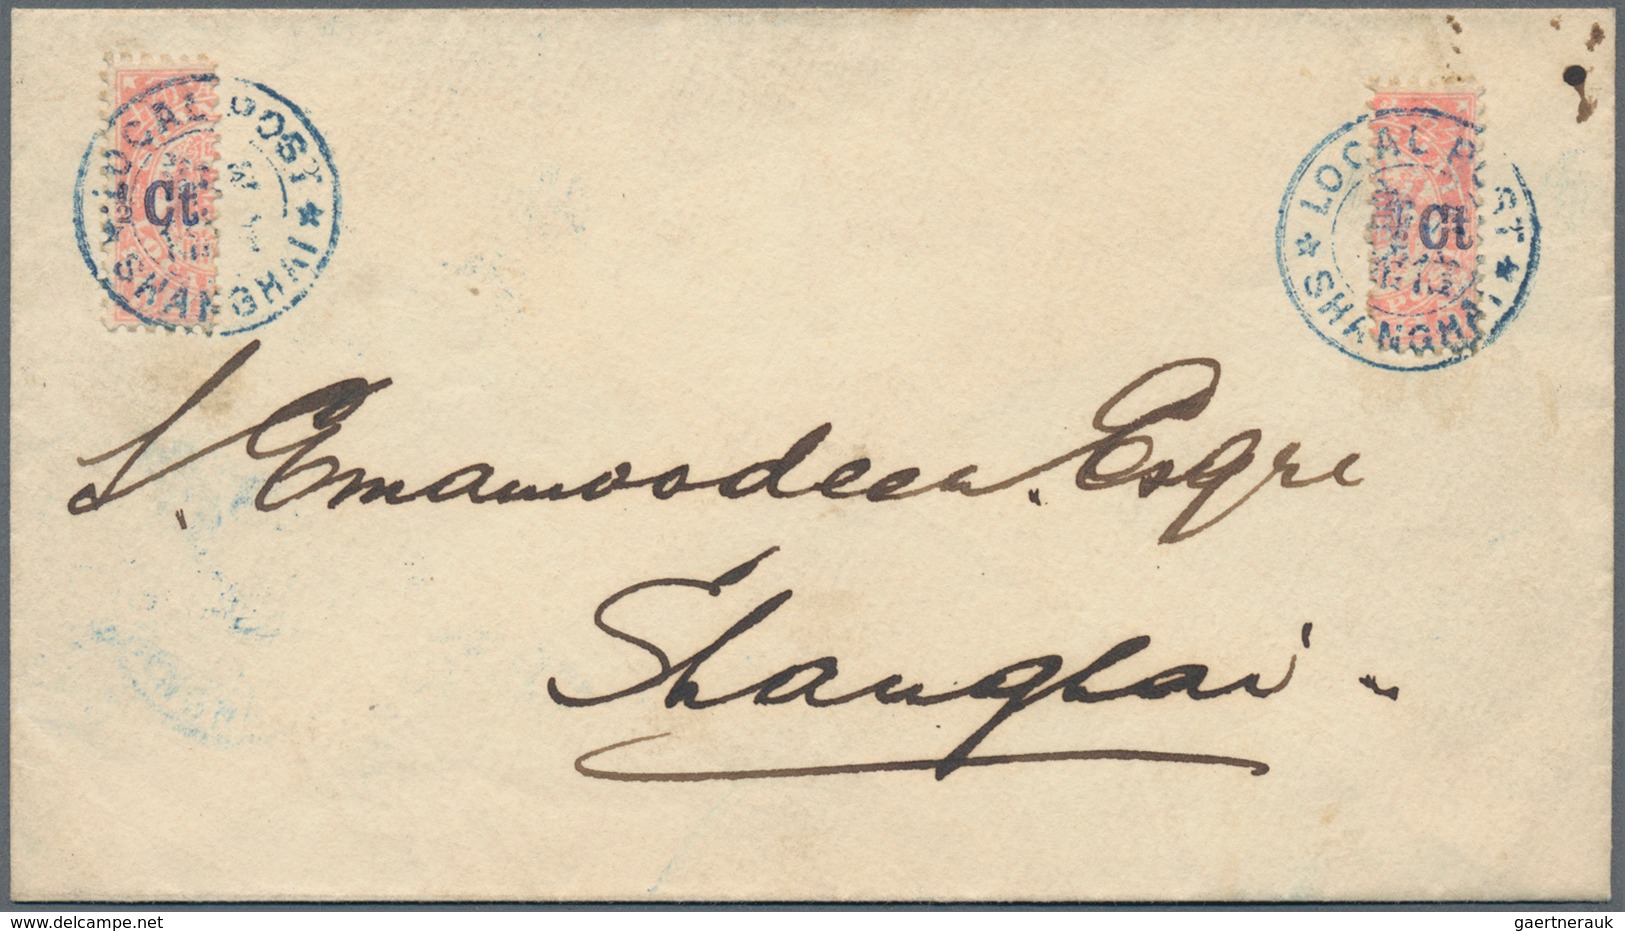 LOCAL POST
SHANGHAI
Ct.
LOCAL POST
SHANGHAI
Ct
S. Emamoodeen. Esqre
Shanghai
www.delcampe.net
gaertnerauk